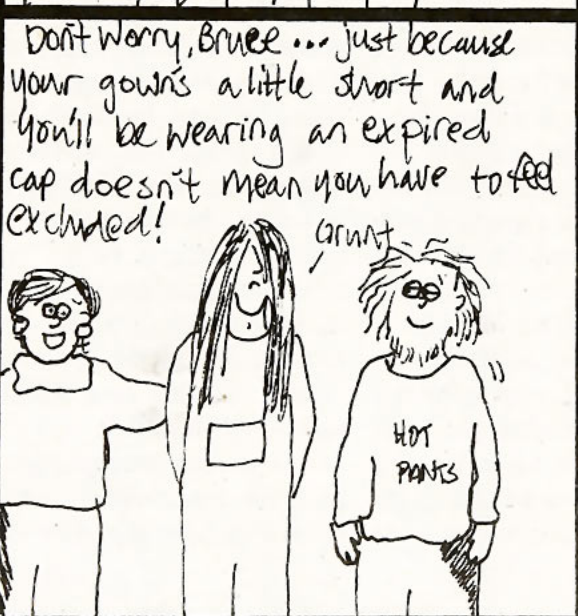 Don't Worry, Bruce... just because
your gown's a little short and
you'll be wearing an expired
cap doesn't mean you have to feel
excluded!
Grunt
HOT
PANTS